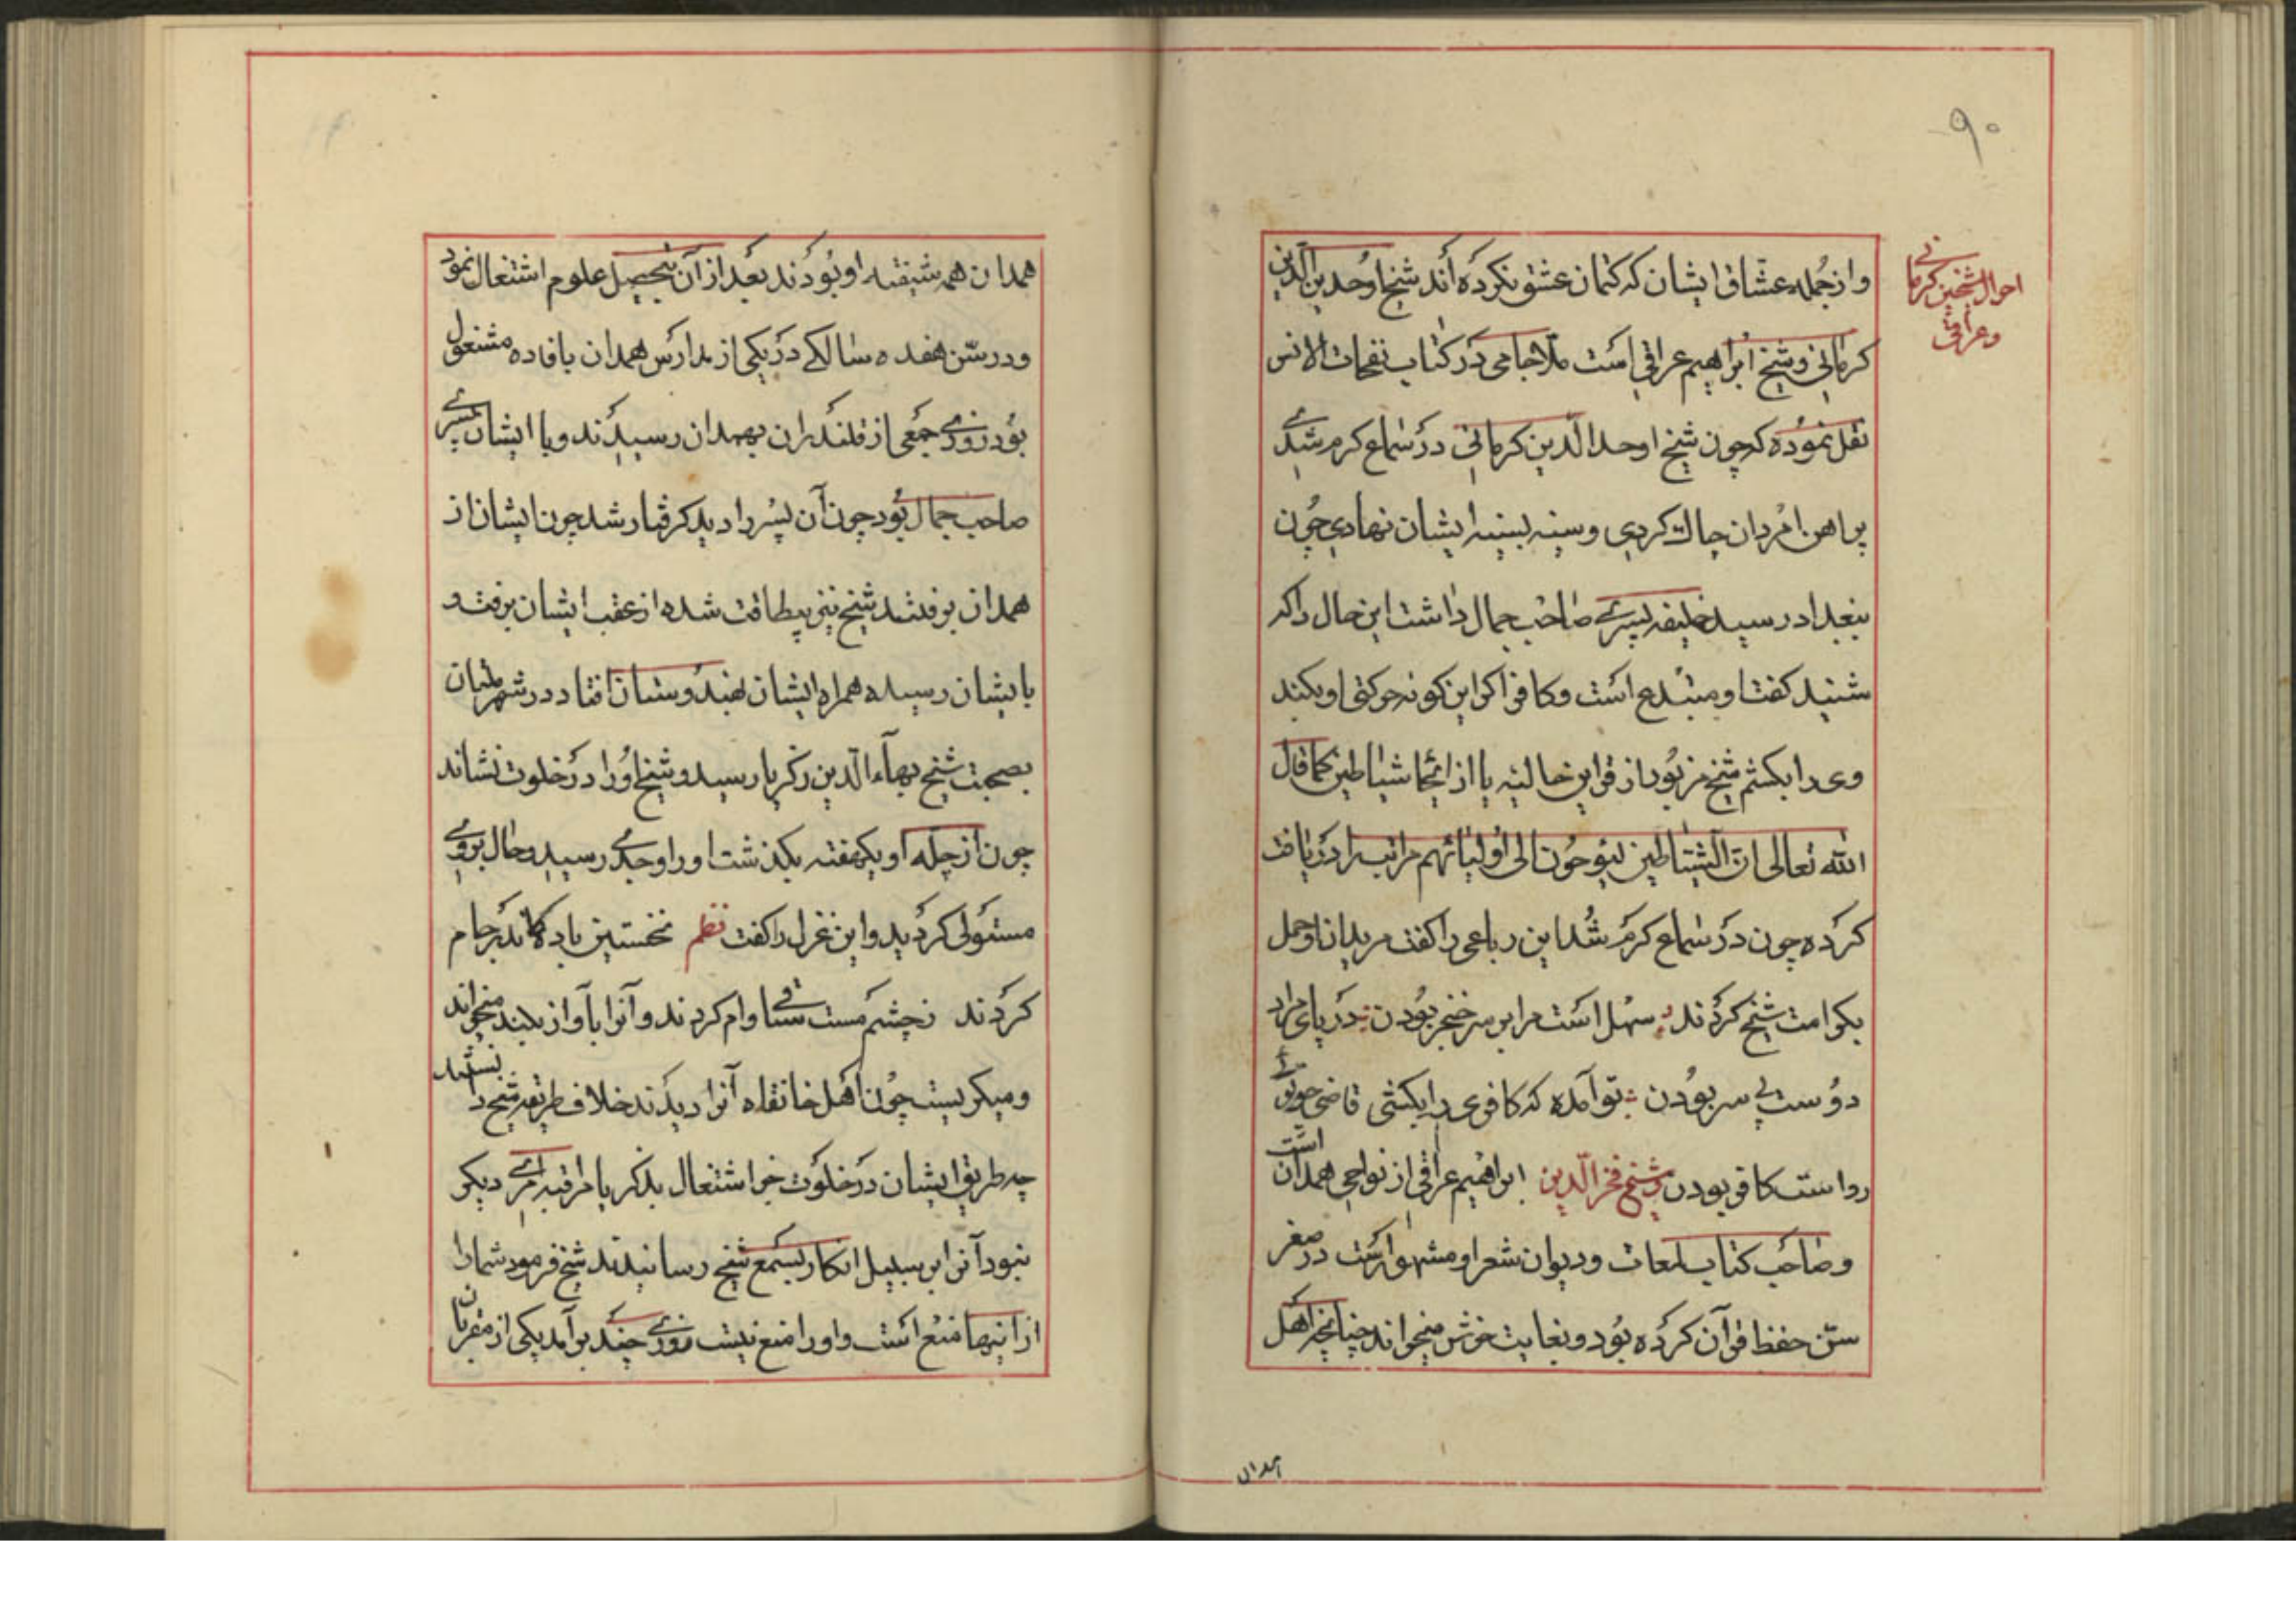 ۹۰
احوال شیخین کرمانی
و عراقی
و از جمله عشّاق ایشان که کتمان عشق نکرده اند شیخ اوحد بن الدین
کرمانی و شیخ ابراهیم عراقی است ملا جامی در کتاب نفحات الانس
نقل نموده که چون شیخ اوحد الدین کرمانی در سماع کرم شدی
پراهن امردان چاك کردی و سینه بسینه ایشان نهادی چون
ببغداد رسید خلیفه پسری صاحب جمال داشت این حال را که
شنید کفت او مبتدع است و کافر اکر این کونه حرکتی او بکند
وی را بکشم شیخ مزبور از قراین حالیه یا از ایحا شیاطین کما قال
الله تعالی ان الشیاطین لیوحون الی اولیائهم مراتب را دریافت
کرده چون در سماع کرم شد این رباعی را کفت مریدان او حمل
بکرامت شیخ کردند سهل است مرا بر سر خنجر بودن در پای مراد
دوست بی سر بودن تو آمده که کافری را بکشی غازی چو توئی
رواست کافر بودن و شیخ فخر الدین ابراهیم عراقی از نواحی همدان است
و صاحب کتاب لمعات و دیوان شعر او مشهور است در صغر
سن حفظ قرآن کرده بود و بغایت خوش میخواند چنانچه اهل
همدان
همدان همه شیفته او بودند بعد از آن بتحصیل علوم اشتغال نمود
و در سن هفده سالکی در یکی از مدارس همدان بافاده مشغول
بود روزی جمعی از قلندران بهمدان رسیدند و با ایشان پسری
صاحب جمال بود چون آن پسر را دید کرفتار شد چون ایشان از
همدان برفتند شیخ نیز بیطاقت شده از عقب ایشان برفت و
بایشان رسیده همراه ایشان بهندوستان افتاد در شهر ملتان
بصحبت شیخ بهآء الدین زکریا رسید و شیخ او را در خلوت نشاند
چون از چله او یکهفته بکذشت او را وجدی رسید و حال بر وی
مستولی کردید و این غزل را کفت نظم نخستین باده کاندر جام
کردند ز چشم مست ساقی وام کردند و آنرا بآواز بلند میخواند
و میکریست چون اهل خانقاه آنرا دیدند خلاف طریقه شیخ دانستند
چه طریق ایشان در خلوت جز اشتغال بذکر یا مراقبه امری دیکر
نبود آنرا بر سبیل انکار بسمع شیخ رسانیدند شیخ فرمود شما را
از اینها منع است و او را منع نیست روزی چند برآمد یکی از مقربان